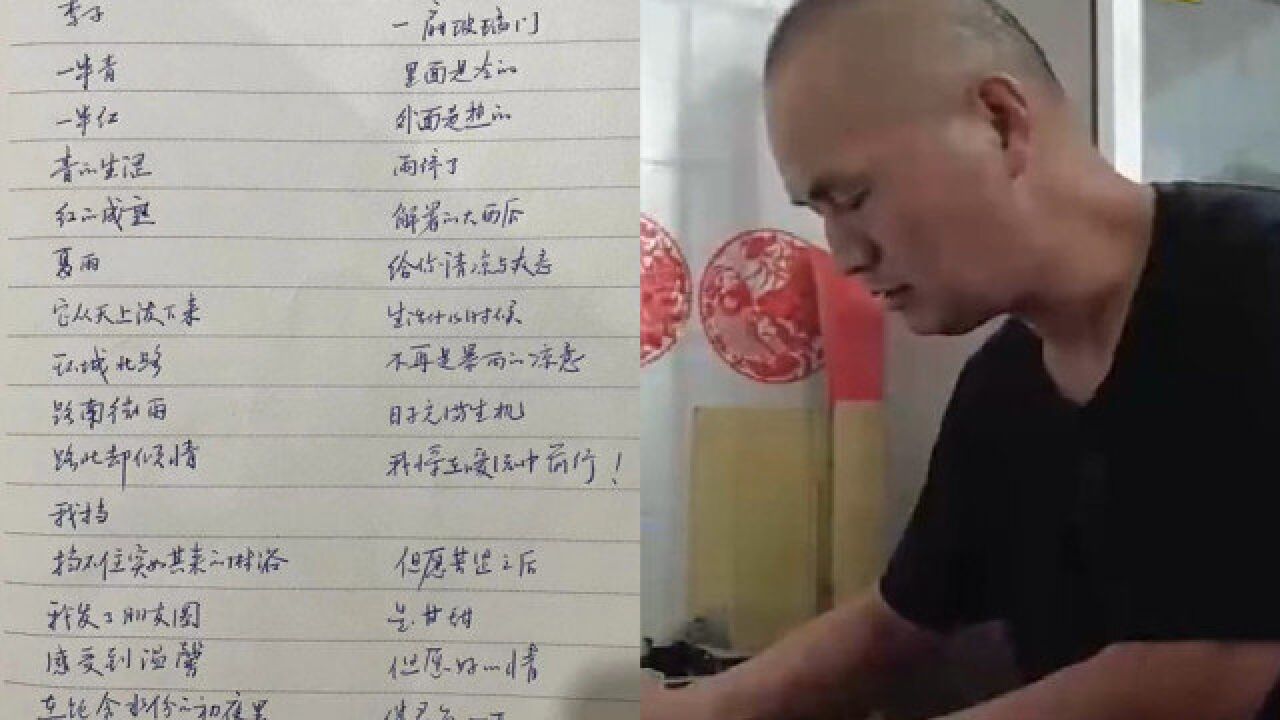 李子
一半青
一半红
青的生涩
红的成熟
夏雨
它从天上泼下来
环城北路
路南微雨
路北却倾情
我挡
挡不住突如其来的淋浴
我发了朋友圈
感受到温馨
在
一扇玻璃门
里面是冷的
外面是热的
雨停了
解暑的大雨后
给你清凉与
时候
不再是暴雨的凉意
日子充满生机
我将在暖流中前行！
但愿苦涩之后
是甘甜
但愿好心情